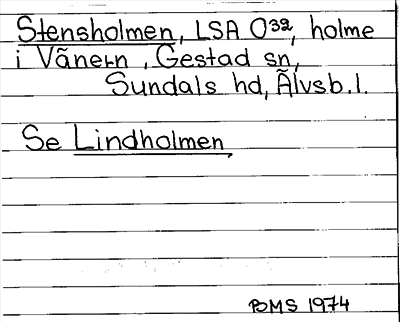 Stensholmen, LSA O32, holme
i Vãnern, Gestad sn,
Sundals hd, Ãlvsb.l.
Se Lindholmen,
BMS 1974